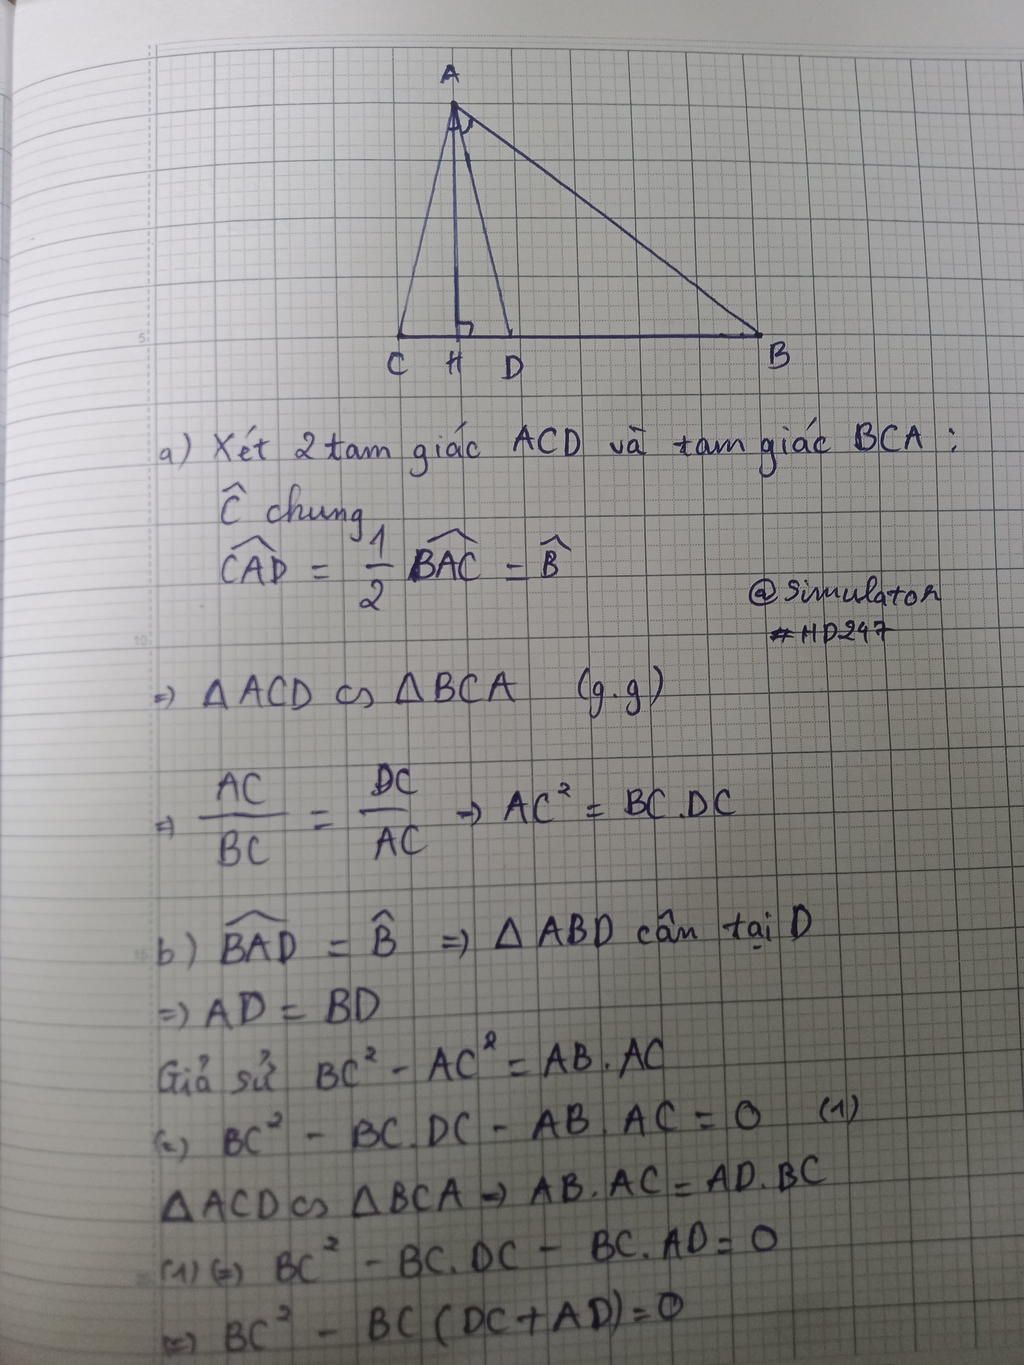 A
C H D B
a) Xét 2 tam giác ACD và tam giác BCA :
Ĉ chung
$\widehat{CAD} = \frac{1}{2} \widehat{BAC} = \widehat{B}$
@Simulator
#HD247
=> ΔACD ∽ ΔBCA (g.g)
=> $\frac{AC}{BC} = \frac{DC}{AC}$ => AC² = BC.DC
b) $\widehat{BAD} = \widehat{B}$ => Δ ABD cân tại D
=> AD = BD
Giả sử BC² - AC² = AB.AC
(=) BC² - BC.DC - AB.AC = 0 (1)
ΔACD ∽ ΔBCA => AB.AC = AD.BC
(1) (=) BC² - BC.DC - BC.AD = 0
(=) BC² - BC(DC+AD)=0
5
10
15
20